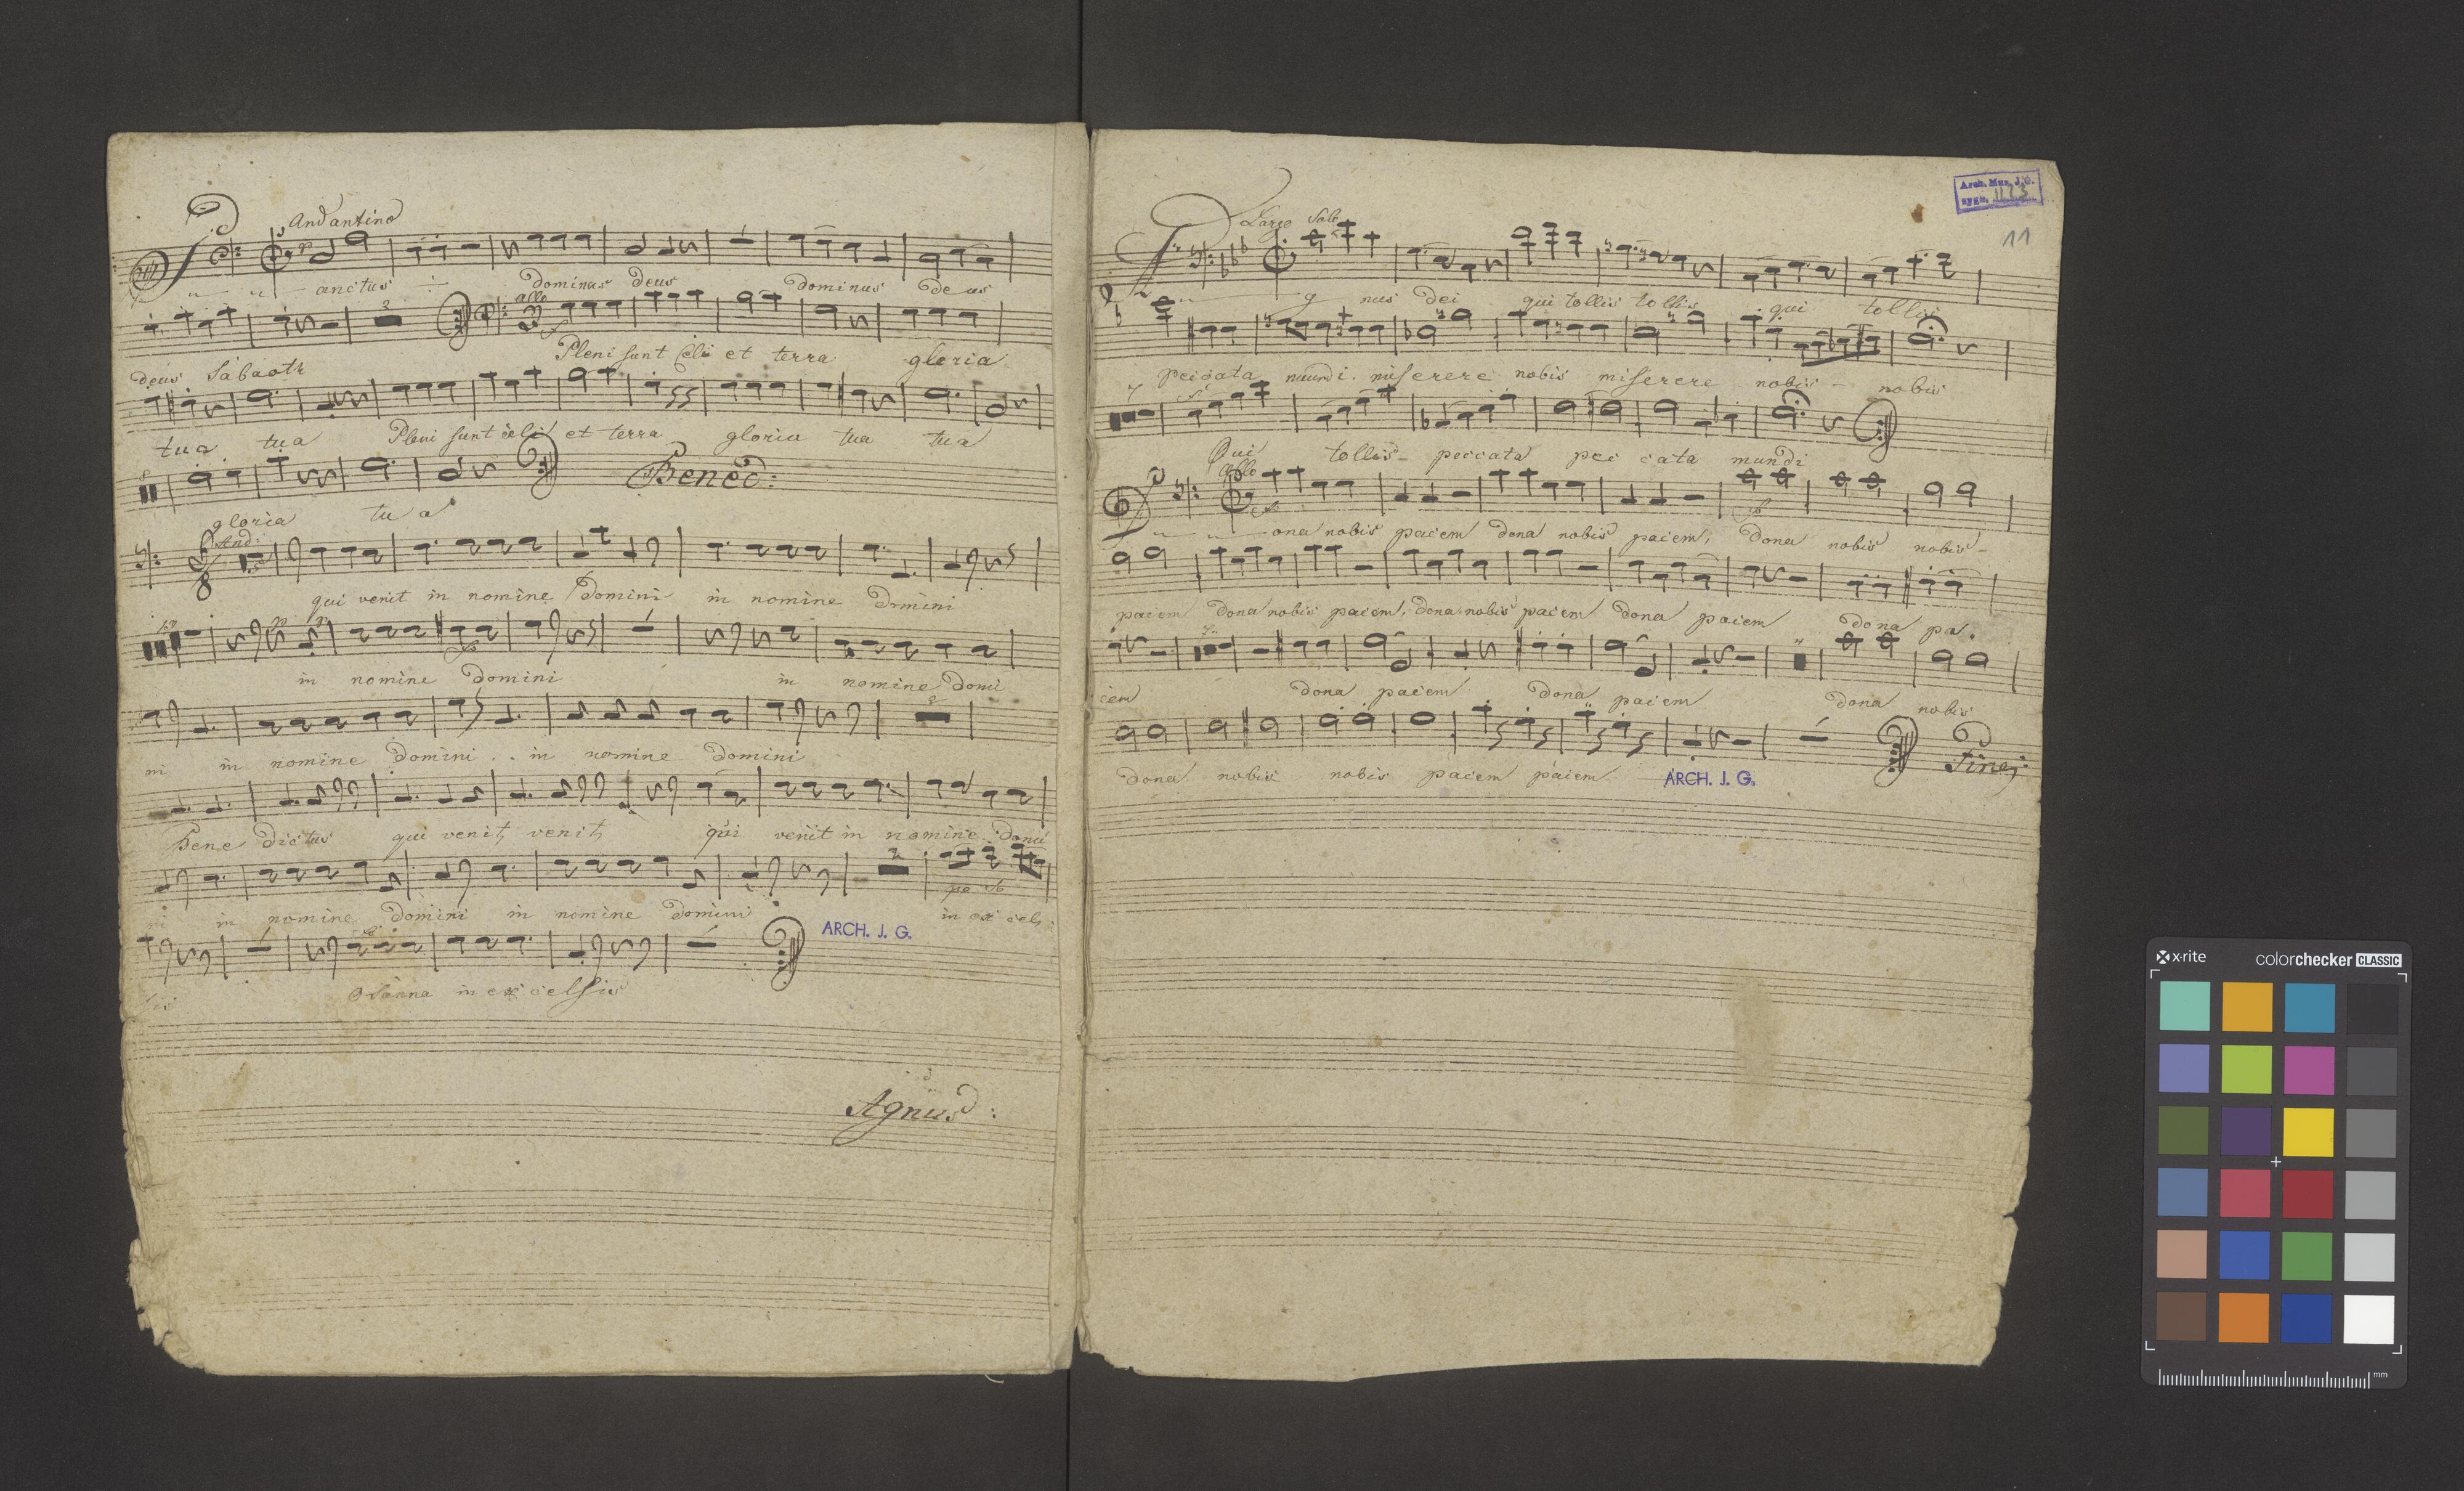 Andantino
S - anctus dominus deus dominus deus
allo
deus Sabaoth Pleni sunt celi et terra gloria
tua tua Pleni sunt celi et terra gloria tua tua
Bened:
gloria tua
And:
qui venit in nomine Domini in nomine Domini
in nomine Domini in nomine Domi
ni in nomine Domini in nomine Domini
Bene dictus qui venit venit qui venit in nomine Domi
ni in nomine Domini in nomine Domini in excels
ARCH. J. G.
sis osanna in excelsis
Agnus:
Arch. Mus. J. G.
sygn. 1123
11
Largo Solo
A - gnus dei qui tollis tollis qui tollis
peccata mundi miserere nobis miserere nobis - nobis
Qui tollis - peccata peccata mundi
allo
D - ona nobis pacem dona nobis pacem, dona nobis nobis -
pacem dona nobis pacem, dona nobis pacem dona pacem dona pa.
cem dona pacem dona pacem dona nobis
Fine
dona nobis nobis pacem pacem
ARCH. J. G.
x·rite colorchecker CLASSIC
mm